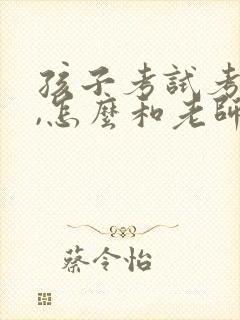 孩子考試考
,怎麼和老師
蔡令怡